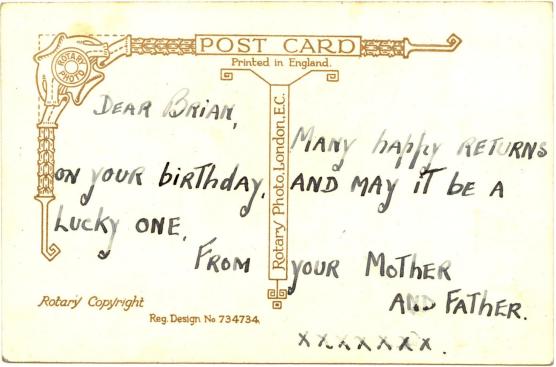 POST CARD
Printed in England.
ROTARY PHOTO
Rotary Photo, London, E.C.
DEAR BRIAN,
MANY happy RETURNS
ON YOUR birthday, AND MAY iT bE A
Lucky ONE.
FROM YOUR MOTHER
AND FATHER.
xxxxxxx.
Rotary Copyright
Reg. Design No 734734.